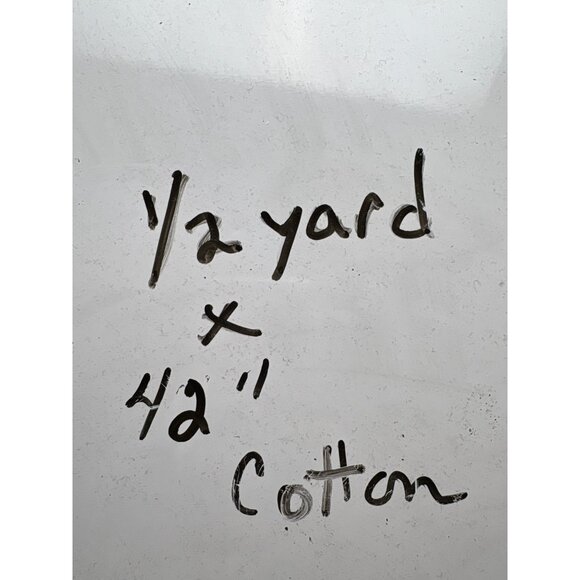 1/2 yard
x
42"
Cotton